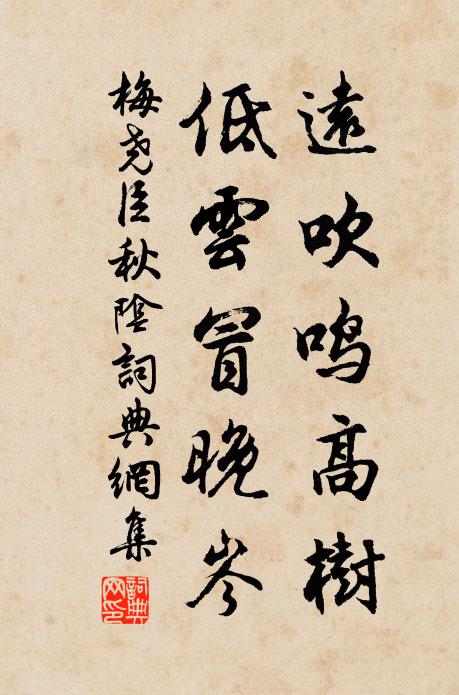 遠吹鳴高樹
低雲冒晚岑
梅堯臣秋陰詞典網集
詞典
网印